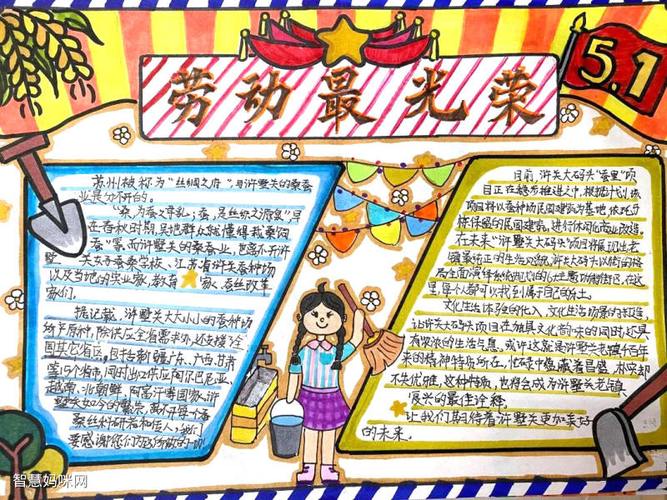 劳动最光荣
5.1
苏州被称为"丝绸之府",与浒墅关的桑蚕
业是分不开的。
"桑,为蚕之母乳;蚕,是丝织之源泉"早
在春秋时期,吴地群众就懂得栽桑饲
蚕
而浒墅关的桑蚕业,也离不开浒墅
关女子蚕桑学校、江苏省浒关蚕种场
以及当地的实业家,教育家、蚕丝改革
家们。
据记载,浒墅关大大小小的蚕种场
所产原种,除供应全省需求外,还支援全
国其它省区,包括新疆、广东、广西、甘肃
等15个省市,同时出口供应阿尔巴尼亚、
越南、北朝鲜、阿富汗等国家。浒
离不开每个
桑丝科研者和
要感谢他们
目前,浒关大码头"蚕里"项
目正在稳步推进之中,根据计划,该
项目将以蚕种场民国建筑为基地,依托
栋保留的民国建筑,进行休闲化商业改造。
在未来"浒墅关大码头"项目将展现出老
浒关大码头以街的格
在这
里,每个人都可以找到属于自己的
文化生活体验的植入,文化生活场景的
让浒关大码头项目在颇具文化韵味的同时,还具
有浓浓的生活气息,或许这就是浒墅关老镇千百年
来的精神特质所在,忙碌中蕴藏着
不失优雅,这种特质,也将会成为浒墅关老镇
复兴的最佳诠释
让我们期待着浒墅关更加美好
的未来。
智慧妈咪网